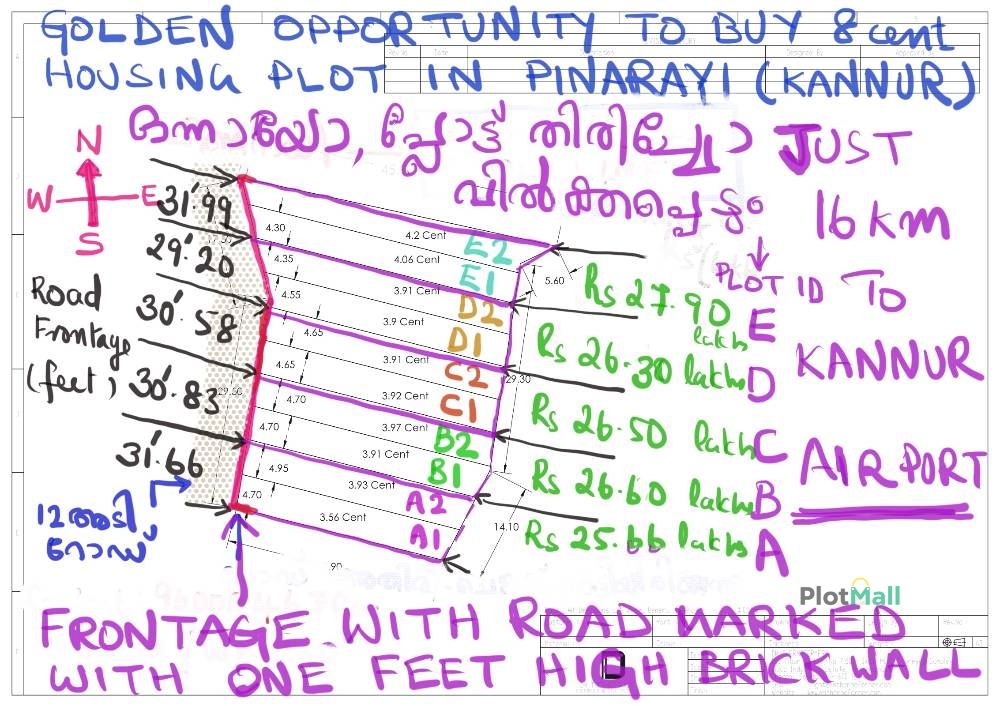 GOLDEN OPPORTUNITY TO BUY 8 cent
HOUSING PLOT IN PINARAYI (KANNUR)
ഒന്നായോ, പ്ലോട്ട് തിരിച്ചോ JUST
വിൽക്കപ്പെടും 16 km
N
W E
S
31'.99
29'.20
30'.58
30'.83
31'.66
Road
Frontage
(feet)
12 അടി
റോഡ്
4.30
4.35
4.55
4.65
4.65
4.70
4.70
4.95
4.70
4.2 Cent
4.06 Cent
3.91 Cent
3.9 Cent
3.91 Cent
3.92 Cent
3.97 Cent
3.91 Cent
3.93 Cent
3.56 Cent
E2
E1
D2
D1
C2
C1
B2
B1
A2
A1
5.60
29.30
14.10
29.50
90
PLOT ID TO
Rs 27.90 lakhs E
Rs 26.30 lakhs D
Rs 26.50 lakhs C
Rs 26.60 lakhs B
Rs 25.66 lakhs A
KANNUR
AIRPORT
PlotMall
FRONTAGE WITH ROAD MARKED
WITH ONE FEET HIGH BRICK WALL